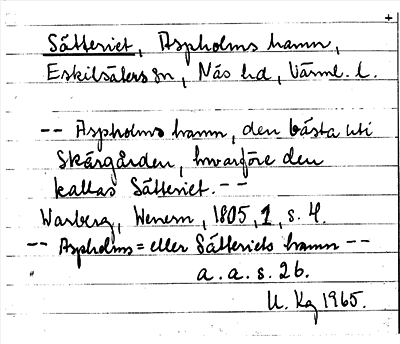 +
Sätteriet, Aspholms hamn,
Eskilsäters sn, Näs hd, Värml. l.
-- Aspholms hamn, den bästa uti
Skärgården, hwarföre den
kallas Sätteriet. --
Warberg, Wenern, 1805, 1, s. 4.
-- Aspholms= eller Sätteriets hamn --
a. a. s. 26.
U. Kg 1965.